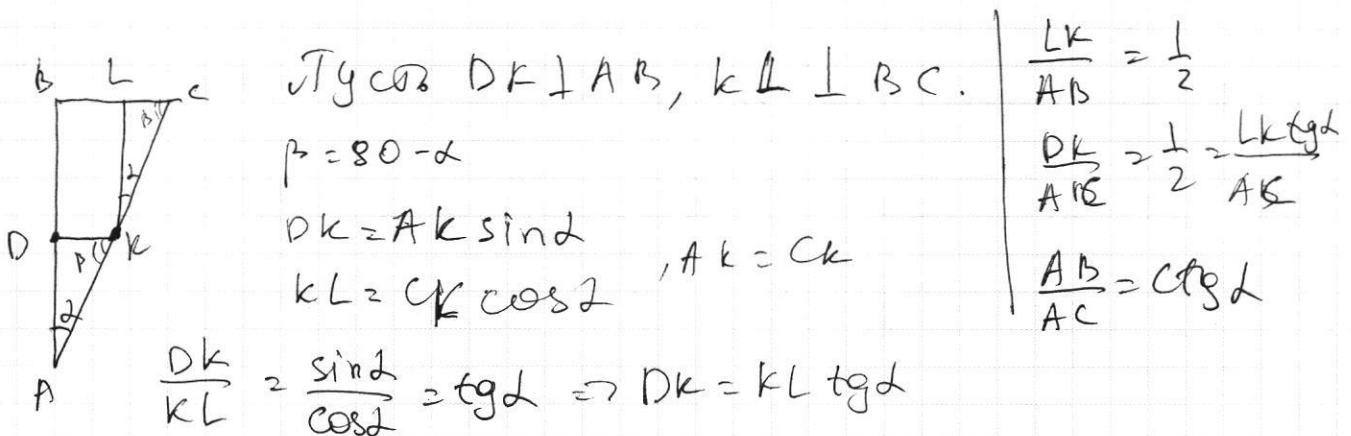 B L C
β
α
D K
β
α
A
Пусть DK ⊥ AB, KL ⊥ BC.
β = 90 - α
DK = AK sin α
KL = CK cos α , AK = CK
DK/KL = sin α/cos α = tg α => DK = KL tg α
LK/AB = 1/2
= 1/2 = LK tg α
AB/AC = ctg α